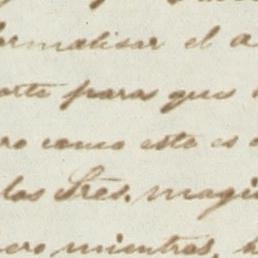 ormalisar el a
orte para que
ro como este es
los Sres. magi
ero mientras,